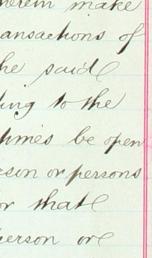 herein make
ansactions of
he said
ing to the
times be open
son or persons
or that
person or